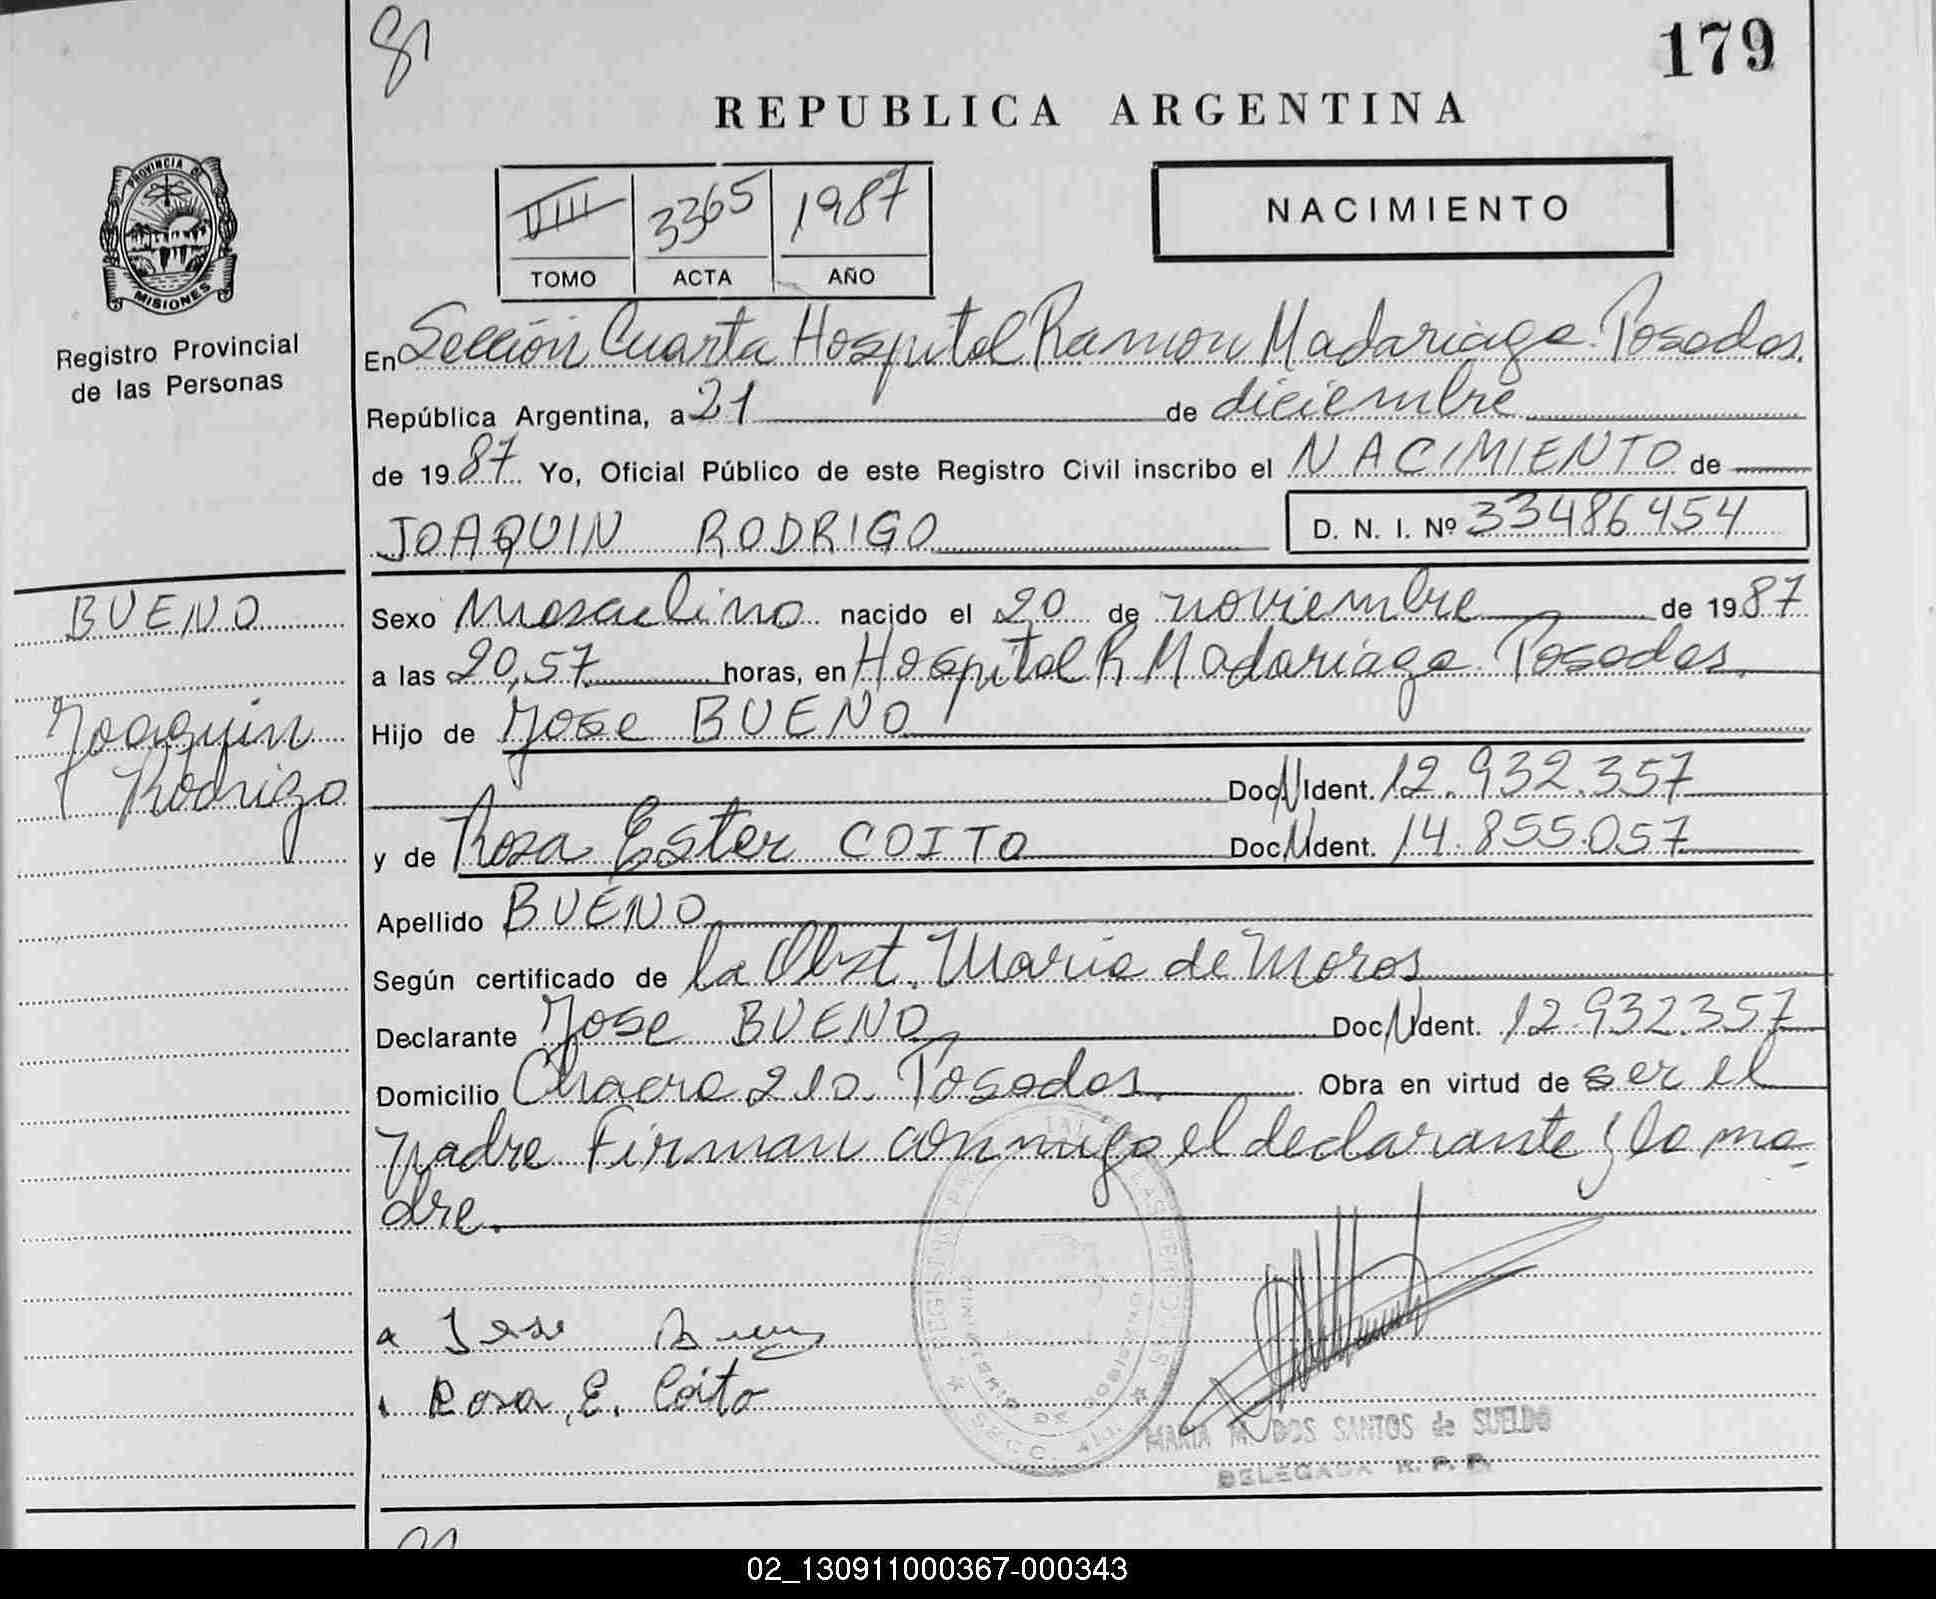 81
179
REPUBLICA ARGENTINA
PROVINCIA DE
MISIONES
Registro Provincial
de las Personas
VIII 3365 1987
TOMO ACTA AÑO
NACIMIENTO
En Sección Cuarta Hospital Ramon Madariaga. Posadas.
República Argentina, a 21 de diciembre
de 1987. Yo, Oficial Público de este Registro Civil inscribo el NACIMIENTO de
JOAQUIN RODRIGO D. N. I. Nº 33486454
BUENO
Joaquin
Rodrigo
Sexo Masculino nacido el 20 de noviembre de 1987
a las 20,57 horas, en Hospital R Madariaga. Posadas.
Hijo de Jose BUENO
Doc N Ident. 12.932.357
y de Rosa Ester COITO Doc N Ident. 14.855.057
Apellido BUENO
Según certificado de la Obst. Maria de Moros
Declarante Jose BUENO Doc N Ident. 12.932.357
Domicilio Chacra 210. Posadas. Obra en virtud de ser el
padre Firman conmigo el declarante y la ma-
dre.
Jose Bueno
Rosa E. Coito
MARIA M. DOS SANTOS de SUELDO
DELEGADA R. P. P.
02_130911000367-000343